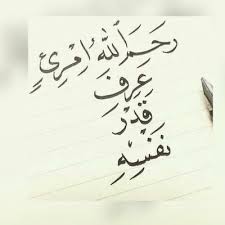 رَحِمَ ٱللهُ ٱمْرِئٍ
عَرِفِ
قَدْرَ
نَفْسِهِ